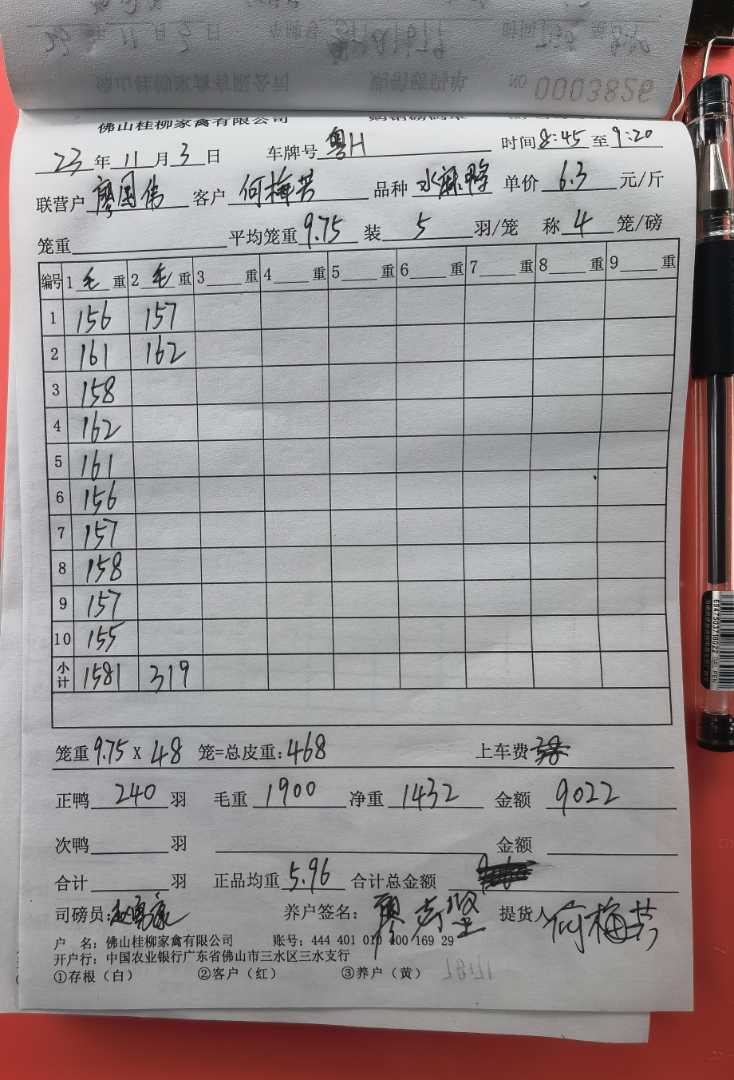 NO 0003826
佛山桂柳家禽有限公司
23 年 11 月 3 日 车牌号 粤H 时间 8:45 至 9:20
联营户 廖国伟 客户 何梅芳 品种 水麻鸭 单价 6.3 元/斤
笼重 平均笼重 9.75 装 5 羽/笼 称 4 笼/磅
编号 1 毛 重 2 毛 重 3 重 4 重 5 重 6 重 7 重 8 重 9 重
1 156 157
2 161 162
3 158
4 162
5 161
6 156
7 157
8 158
9 157
10 155
小计 1581 319
笼重 9.75 X 48 笼=总皮重: 468 上车费
正鸭 240 羽 毛重 1900 净重 1432 金额 9022
次鸭 羽 金额
合计 羽 正品均重 5.96 合计总金额
司磅员: 养户签名: 廖 坚 提货人 何梅芳
户 名: 佛山桂柳家禽有限公司 账号: 444 401 010 400 169 29
开户行: 中国农业银行广东省佛山市三水区三水支行
①存根（白） ②客户（红） ③养户（黄）